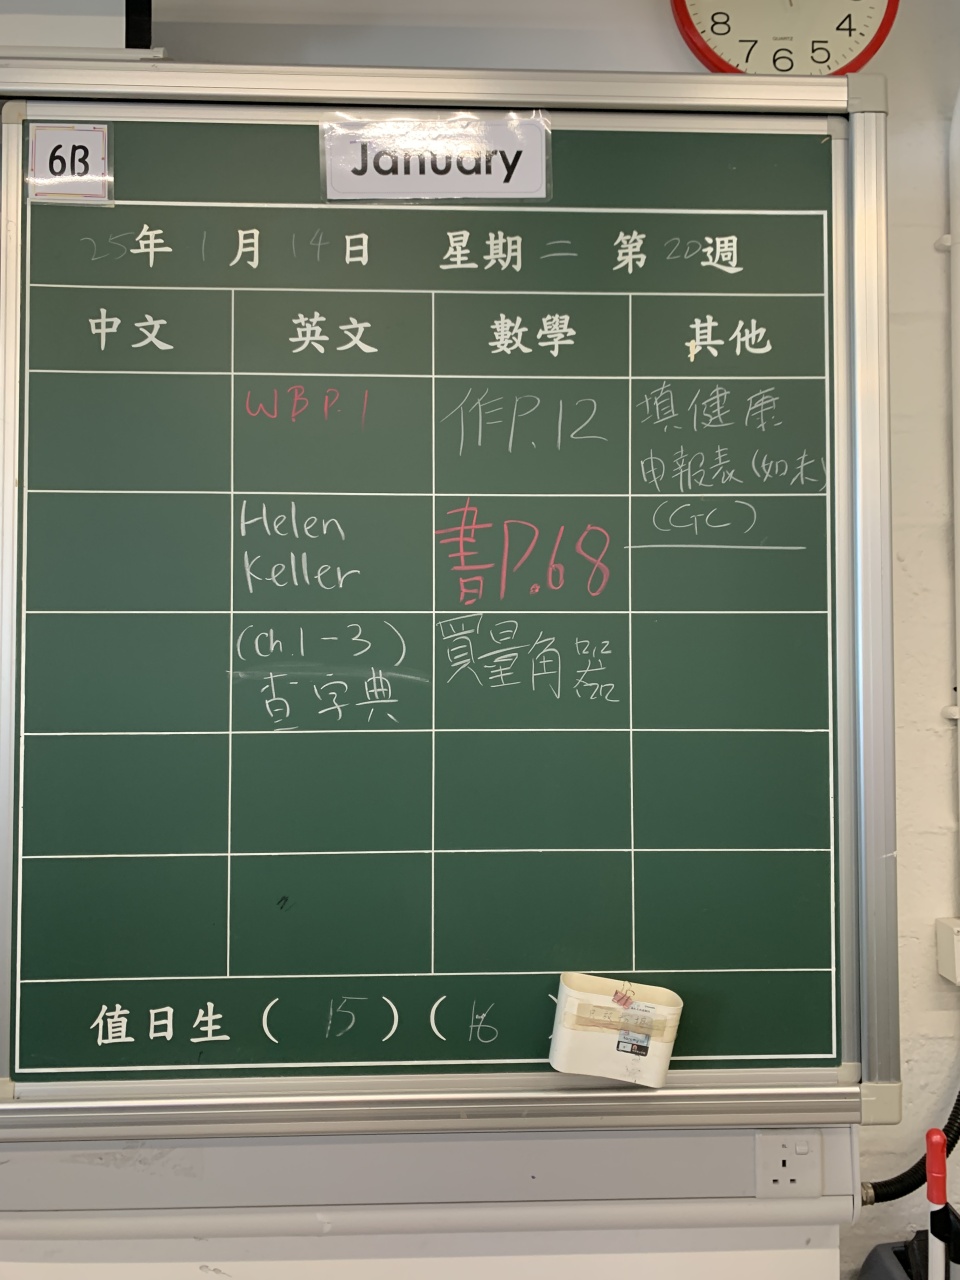 8 7 6 5 4
QUARTZ
6B
January
25年1月14日 星期二 第20週
中文 英文 數學 其他
WB P.1
作P.12
填健康
申報表(如未)
Helen
Keller
書P.68
(GC)
(Ch.1-3)
查字典
買量角器
值日生(15)(16